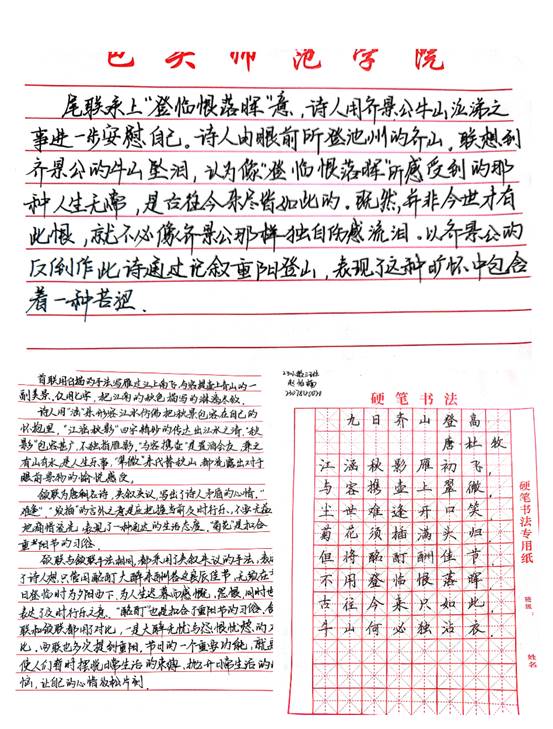 包头师范学院
尾联承上“登临恨落晖”意，诗人用齐景公牛山泣涕之
事进一步安慰自己。诗人由眼前所登池州的齐山。联想到
齐景公的牛山坠泪，认为像“登临恨落晖”所感受到的那
种人生无常，是古往今来尽皆如此的。既然，并非今世才有
此恨，就不必像齐景公那样独自伤感流泪。以齐景公的
反例作此诗通过记叙重阳登山，表现了这种旷怀中包含
着一种苦涩.
首联用白描的手法写雁过江上南飞,与客携壶上青山的一
副美景.仅用七字,把江南的秋色描写的淋漓尽致.
诗人用“涵”来形容江水仿佛把秋景包容在自己的
怀抱里,“江涵秋影”四字精妙的传达出江水之清,“秋
影”包容甚广,不独指雁影,“与客携壶”是置酒会友,兼之
有山有水,是人生乐事,“翠微”来代替秋山,都流露出对于
眼前景物的愉悦感受.
颔联为唐诗名诗,夹叙夹议,写出了诗人矛盾的心情.“
难逢”、“须插”的言外之意是应把握当前及时行乐,不要无益
地痛惜流光,表现了一种通达的生活态度.“菊花”是扣合
重阳节的习俗.
颈联与颔联手法相同,都采用了夹叙夹议的手法,表
了诗人想只管用酩酊大醉来酬答这良辰佳节,无须在
日登临时为夕阳西下、为人生迟暮而感慨,怨恨,同时也
表达了及时行乐之意.“酩酊”也是扣合重阳节的习俗,
联和颈联都用了对比,一是大醉无忧与怨恨忧愁的
比.两联也多次提到重阳,节日的一个重要功能,就是
使人们暂时摆脱日常生活的束缚,抛开日常生活的
恼,让自己的心情放松片刻.
硬笔书法
九日齐山登高
唐·杜牧
江涵秋影雁初飞，
与客携壶上翠微，
尘世难逢开口笑，
菊花须插满头归，
但将酩酊酬佳节，
不用登临恨落晖
古往今来只如此，
牛山何必独沾衣.
硬笔书法专用纸
班级：
姓名